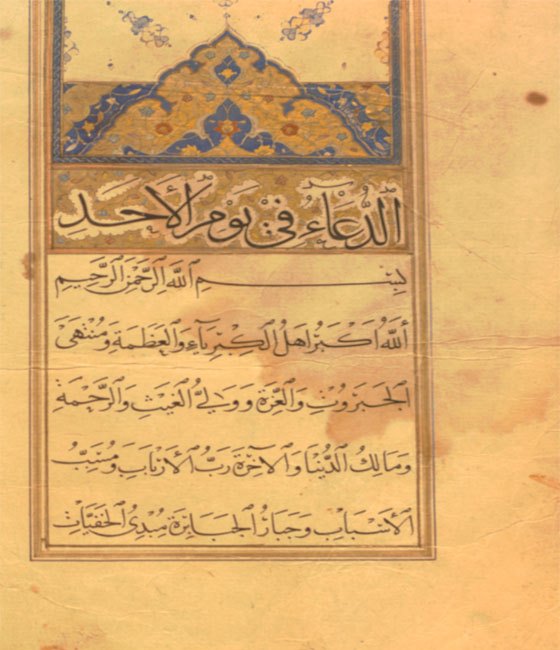 الدُّعَاءُ فِيْ يَوْمِ الْأَحَدِ
بِسْمِ اللَّهِ الرَّحْمَنِ الرَّحِيمِ
اَللَّهُ اَكْبَرُ اَهْلُ الْكِبْرِيَآءِ وَالْعَظَمَةِ وَمُنْتَهَى
الْجَبَرُوْتِ وَالْعِزَّةِ وَوَلِيُّ الْغَيْثِ وَالرَّحْمَةِ
وَمَالِكُ الدُّنْيَا وَالْآخِرَةِ رَبُّ الْأَرْبَابِ وَمُسَبِّبُ
الْأَسْبَابِ وَجَبَّارُ الْجَبَابِرَةِ مُبْدِئُ الْخَفِيَّاتِ